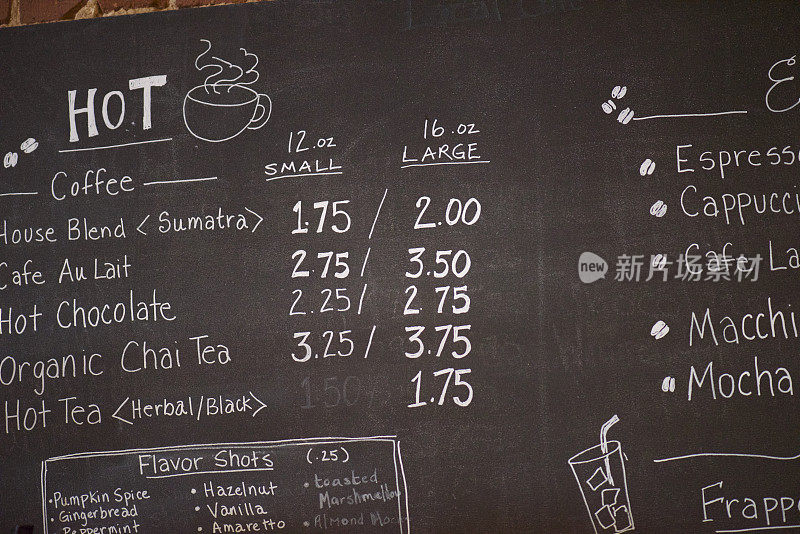 HOT
12.oz
SMALL
16.oz
LARGE
Coffee
House Blend <Sumatra> 1.75 / 2.00
Cafe Au Lait 2.75 / 3.50
Hot Chocolate 2.25 / 2.75
Organic Chai Tea 3.25 / 3.75
Hot Tea <Herbal/Black> 1.50 1.75
Flavor Shots (.25)
•Pumpkin Spice
•Gingerbread
Peppermint
• Hazelnut
• Vanilla
• Amaretto
• toasted
Marshmallow
• Almond
E
Espresso
Cappucci
Cafe La
Macchi
Mocha
Frappe
new 新片场素材